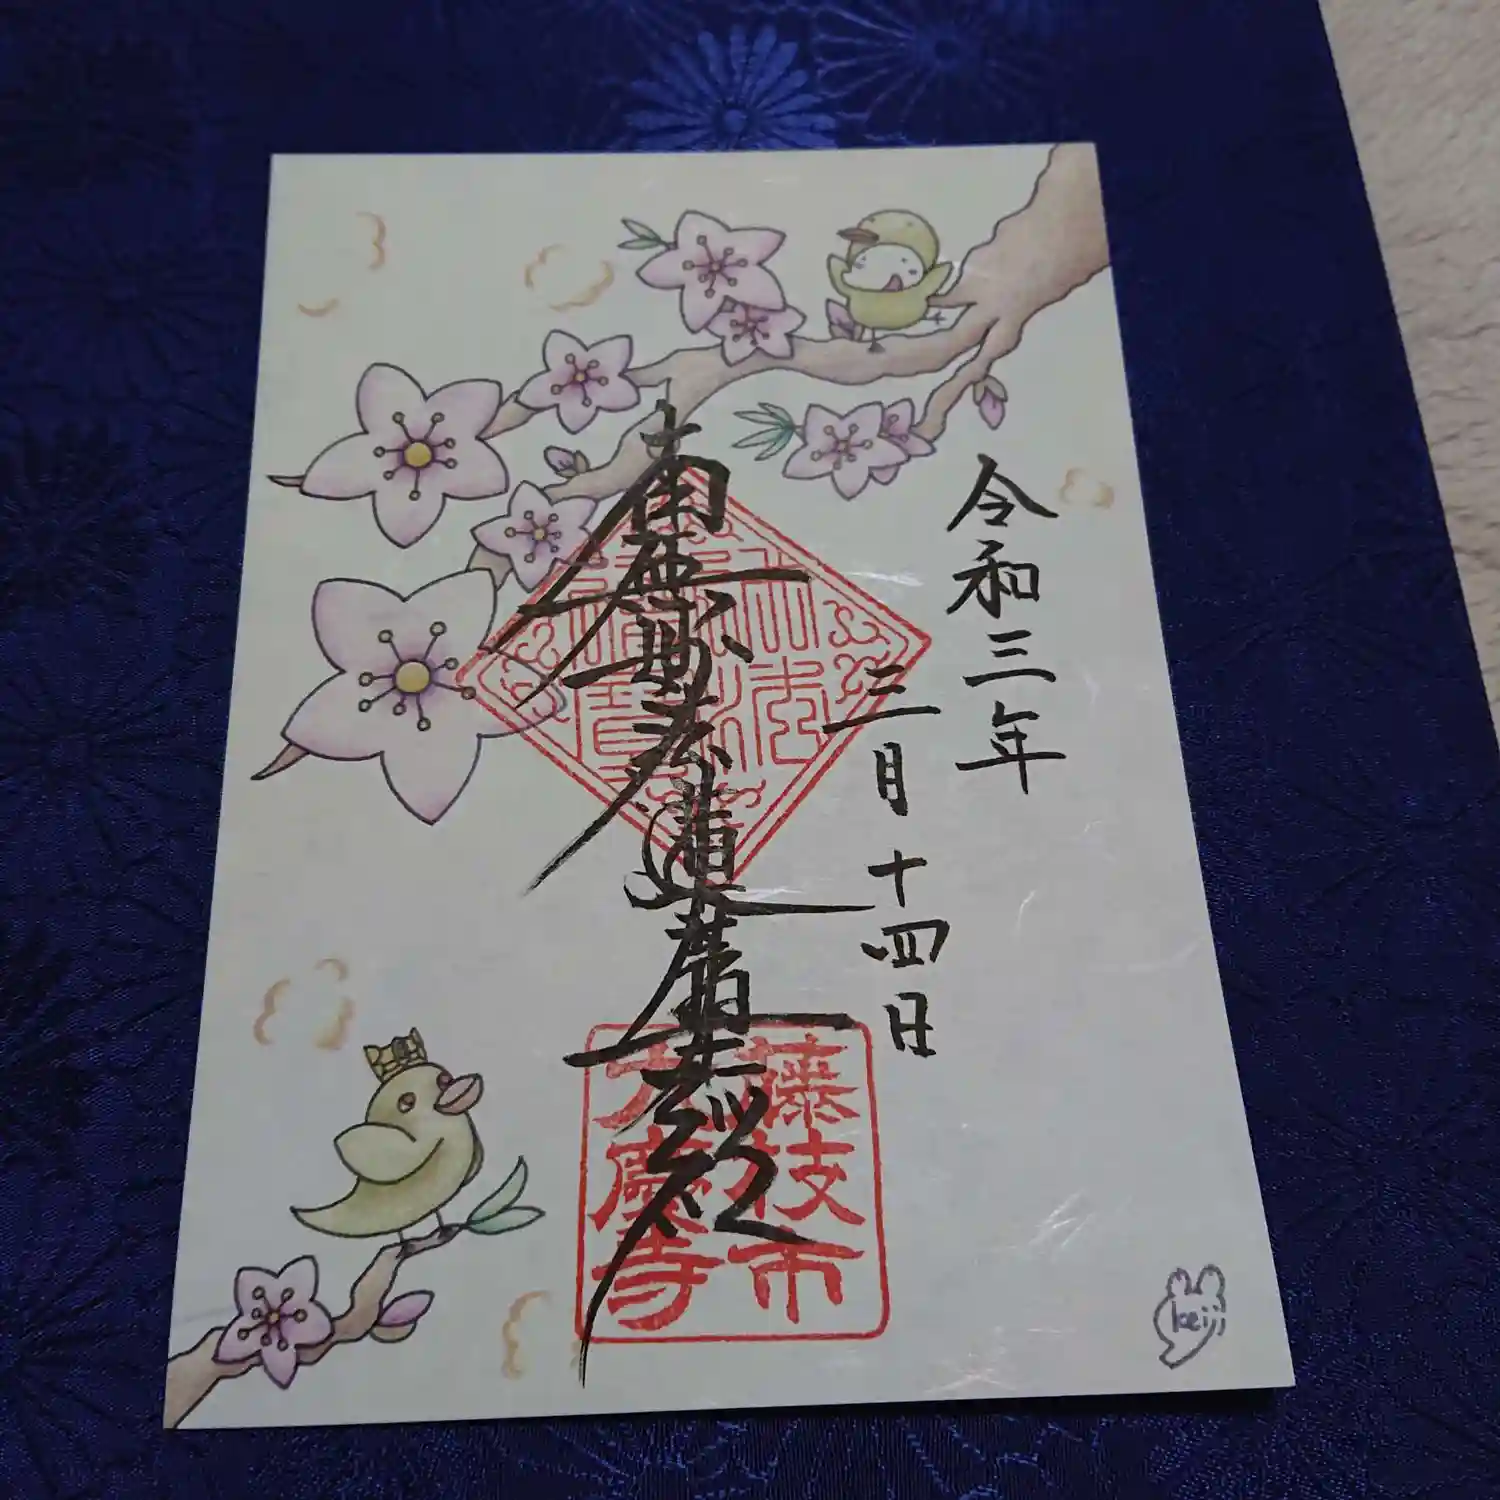 令和三年
三月十四日
南無妙法蓮華経
藤枝市
大慶寺
keiji